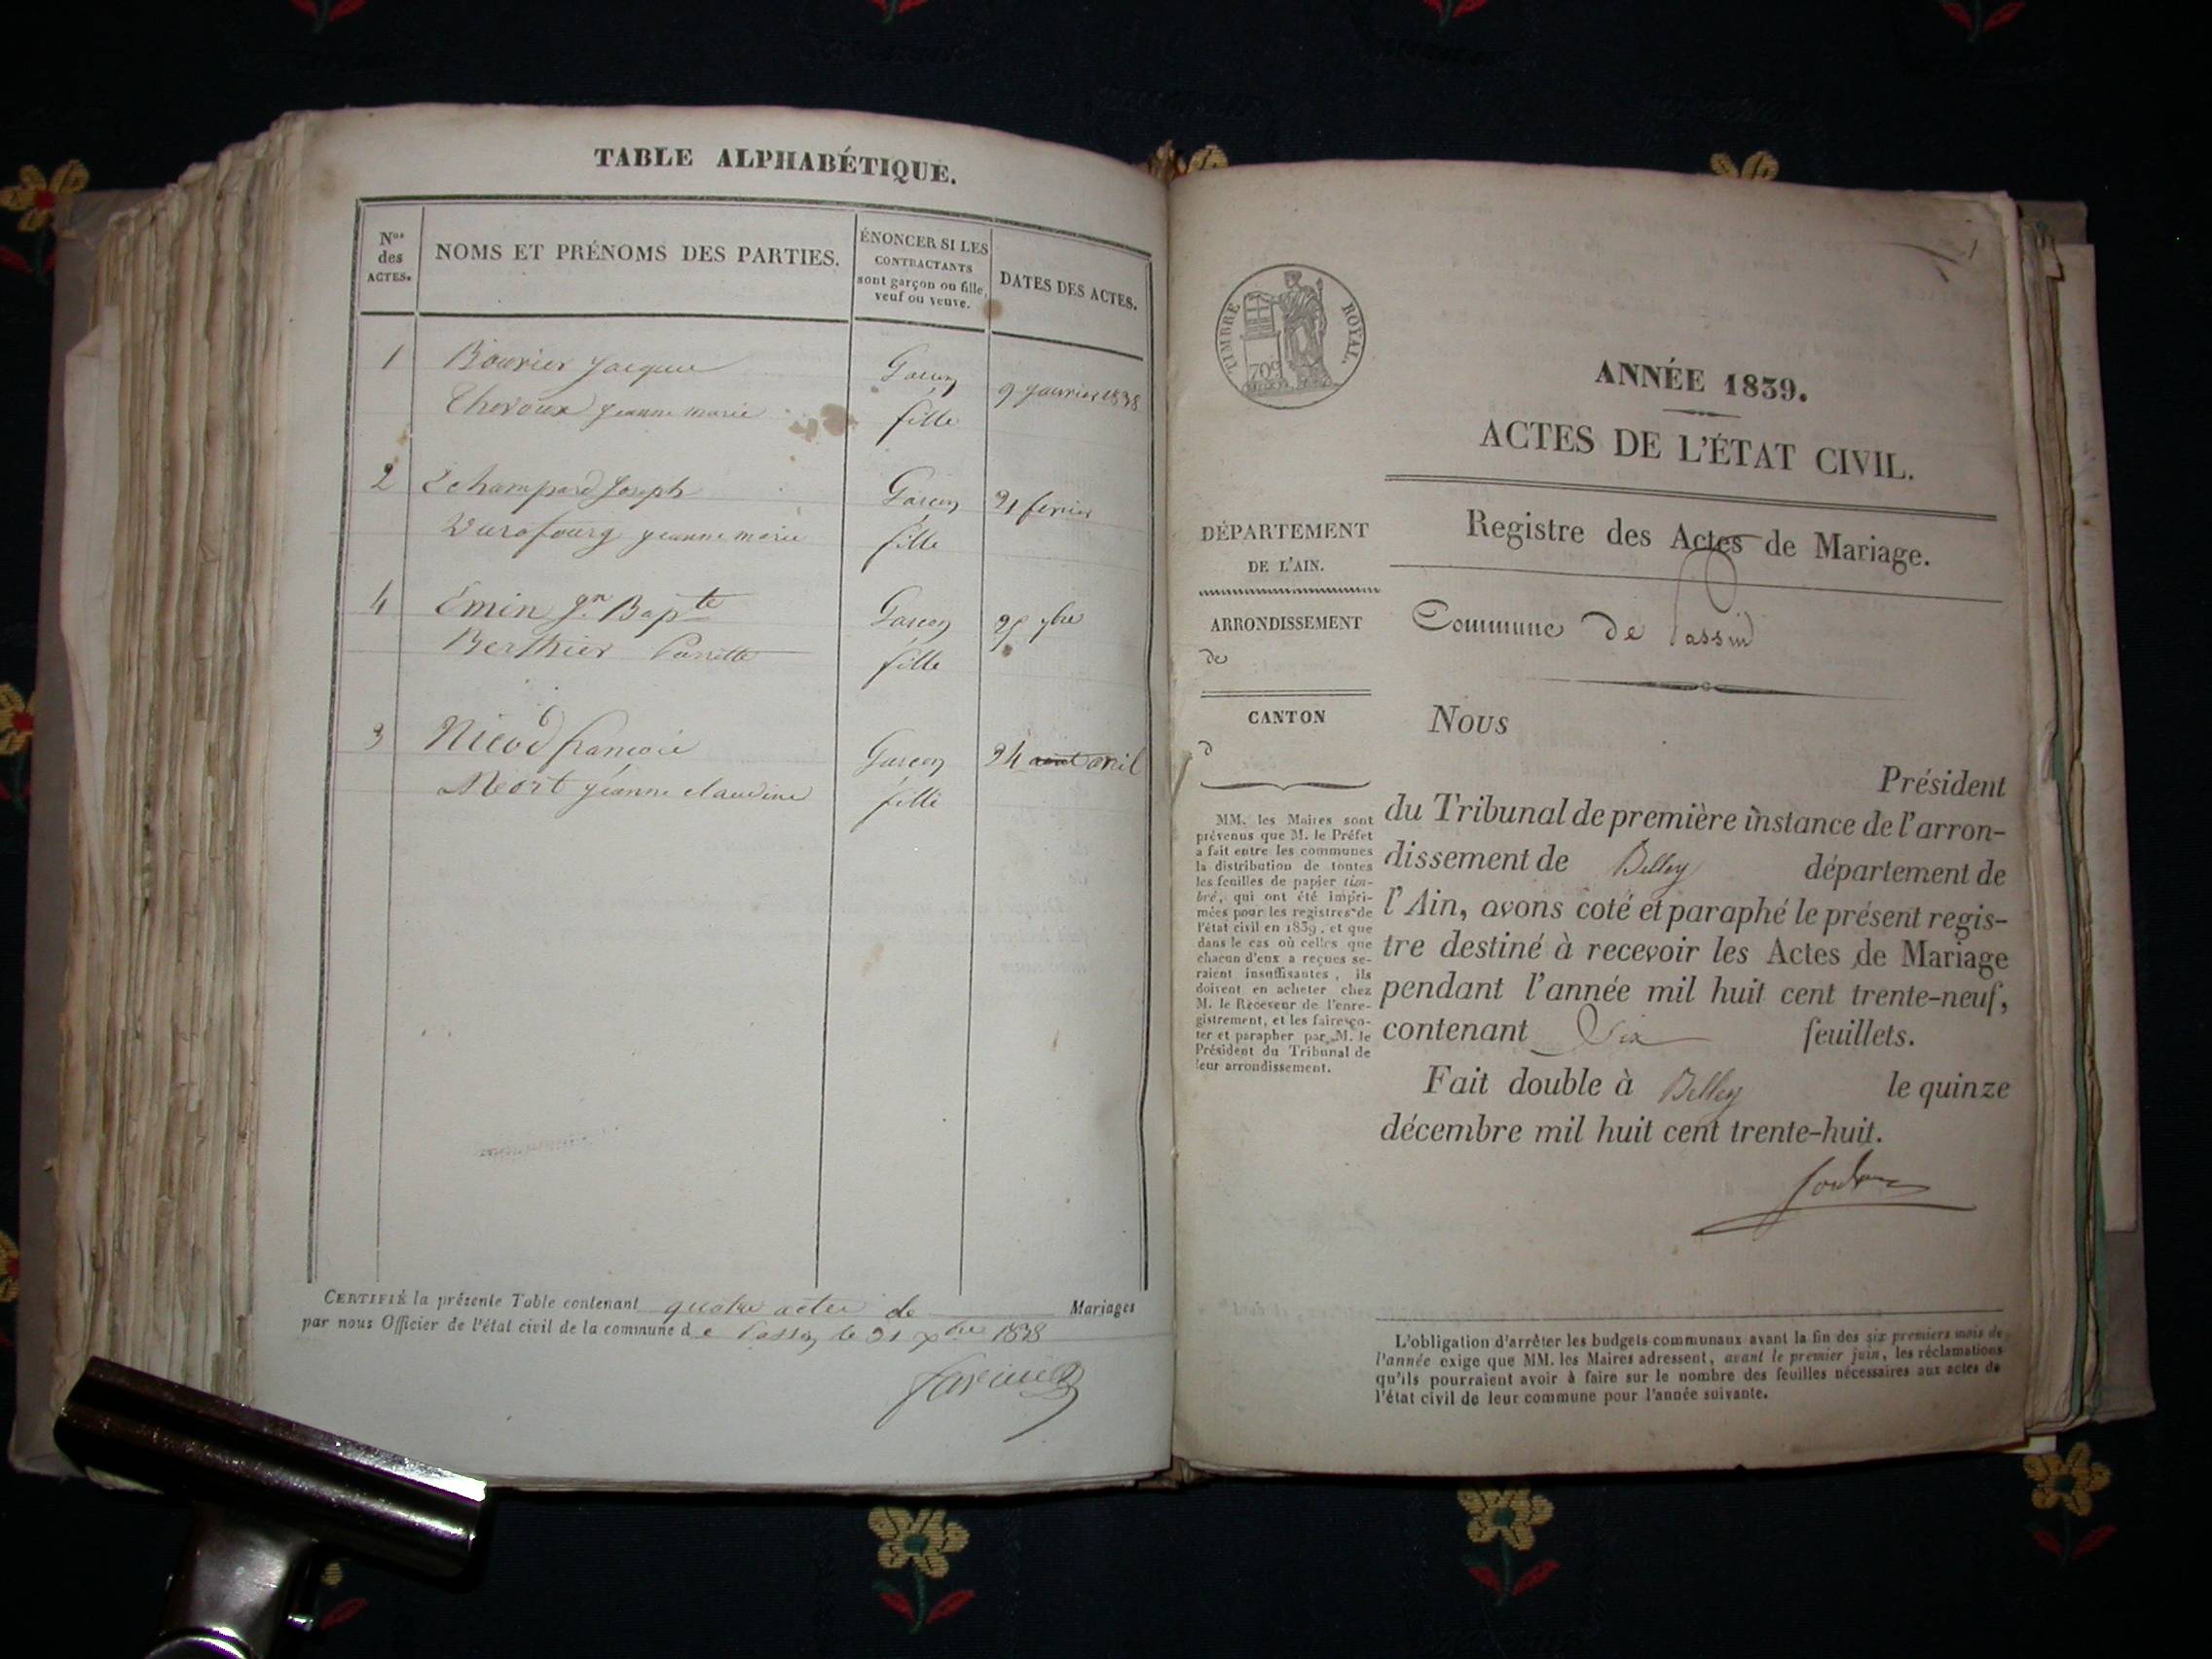 TABLE ALPHABÉTIQUE.
Nos des ACTES.
NOMS ET PRÉNOMS DES PARTIES.
ÉNONCER SI LES
CONTRACTANTS
sont garçon ou fille,
veuf ou veuve.
DATES DES ACTES.
1 Bouvier Jacques Garçon 9 janvier 1838
jeanne marie fille
2 Echampard Joseph Garçon 21 fevrier
Durafourg jeanne marie fille
4 Emin Jn Bapte Garçon 25 7bre
Berthier fille
3 Nicod françois Garçon 24 avril
Mort jeanne claudine fille
CERTIFIÉ la présente Table contenant quatre actes de Mariages
par nous Officier de l'état civil de la commune de Passin le 31 xbre 1838
TIMBRE ROYAL.
70c
ANNÉE 1839.
ACTES DE L'ÉTAT CIVIL.
Registre des Actes de Mariage.
DÉPARTEMENT
DE L'AIN.
ARRONDISSEMENT
de
CANTON
d
Commune de Passin
MM. les Maires sont
prévenus que M. le Préfet
a fait entre les communes
la distribution de toutes
les feuilles de papier tim-
bré, qui ont été impri-
mées pour les registres de
l'état civil en 1839, et que
dans le cas où celles que
chacun d'eux a reçues se-
raient insuffisantes, ils
doivent en acheter chez
M. le Receveur de l'enre-
gistrement, et les faire co-
ter et parapher par M. le
Président du Tribunal de
leur arrondissement.
Nous
Président
du Tribunal de première instance de l'arron-
dissement de Belley département de
l'Ain, avons coté et paraphé le présent regis-
tre destiné à recevoir les Actes de Mariage
pendant l'année mil huit cent trente-neuf,
contenant Six feuillets.
Fait double à Belley le quinze
décembre mil huit cent trente-huit.
L'obligation d'arrêter les budgets communaux avant la fin des six premiers mois de
l'année exige que MM. les Maires adressent, avant le premier juin, les réclamations
qu'ils pourraient avoir à faire sur le nombre des feuilles nécessaires aux actes de
l'état civil de leur commune pour l'année suivante.